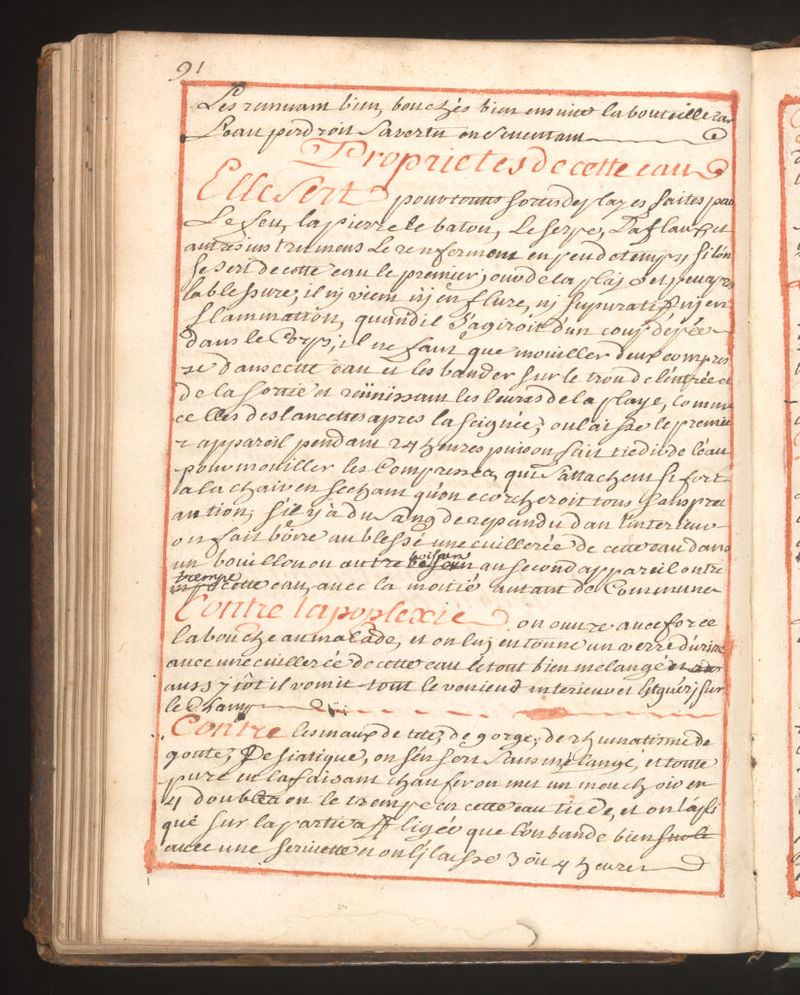 91
Les remuant bien, bouchés bien ensuite la bouteille car
L'eau perdroit sa vertu en s'eventant
Proprietes de cette eau
Elle sert pour toutes sortes de playes faites par
Le feu, la pierre le baton, Le fer,
autres instrumens Le renfermant en peu de temps si l'on
se sert de cette eau le premier jour de la playe et peu apres
la blessure, il ny vient ny enflure, ny supuration ny en
flammation, quand il s'agiroit d'un coup d'épée
dans le Corps, il ne faut que moüiller deux compres
se dans cette eau et les bander sur le trou de l'entrée et
de la sortie et reünissant les leures de la playe, Comme
celles des lancettes apres la seignée, on laisse le premie
r appareil pendant 24 heures puis on fait tiedir de l'eau
pour moüiller les Compresses, qui s'attachent si fort
a la chair en sechant qu'on ecorcheroit tous sans pre
aution, s'il y à du sang de repandu dan l'interieur
on fait boire au blessé une cuillerée de cette eau dans
un boüillon ou autre boisson au second appareil on tre
trempe cette eau, avec la moitié autant de Commune
Contre lapoplexie on ouvre avec force
la bouche au malade, et on luj entonne un verre d'urine
avec une cuillerée de cette eau le tout bien melangé
aussytôt il vomit tout le
le Champ
Contre les maux de tete, de gorge, de rhumatisme de
goute, de siatique, on s'en sert sans mélange, et toute
pure en la faisant chaufer on met un mouchoir en
4 doubles on le trempe en cette eau tiede, et on l'apli
que sur la partie affligée que l'on bande bien
avec une serviette et on l'j laisse 3 où 4 heures